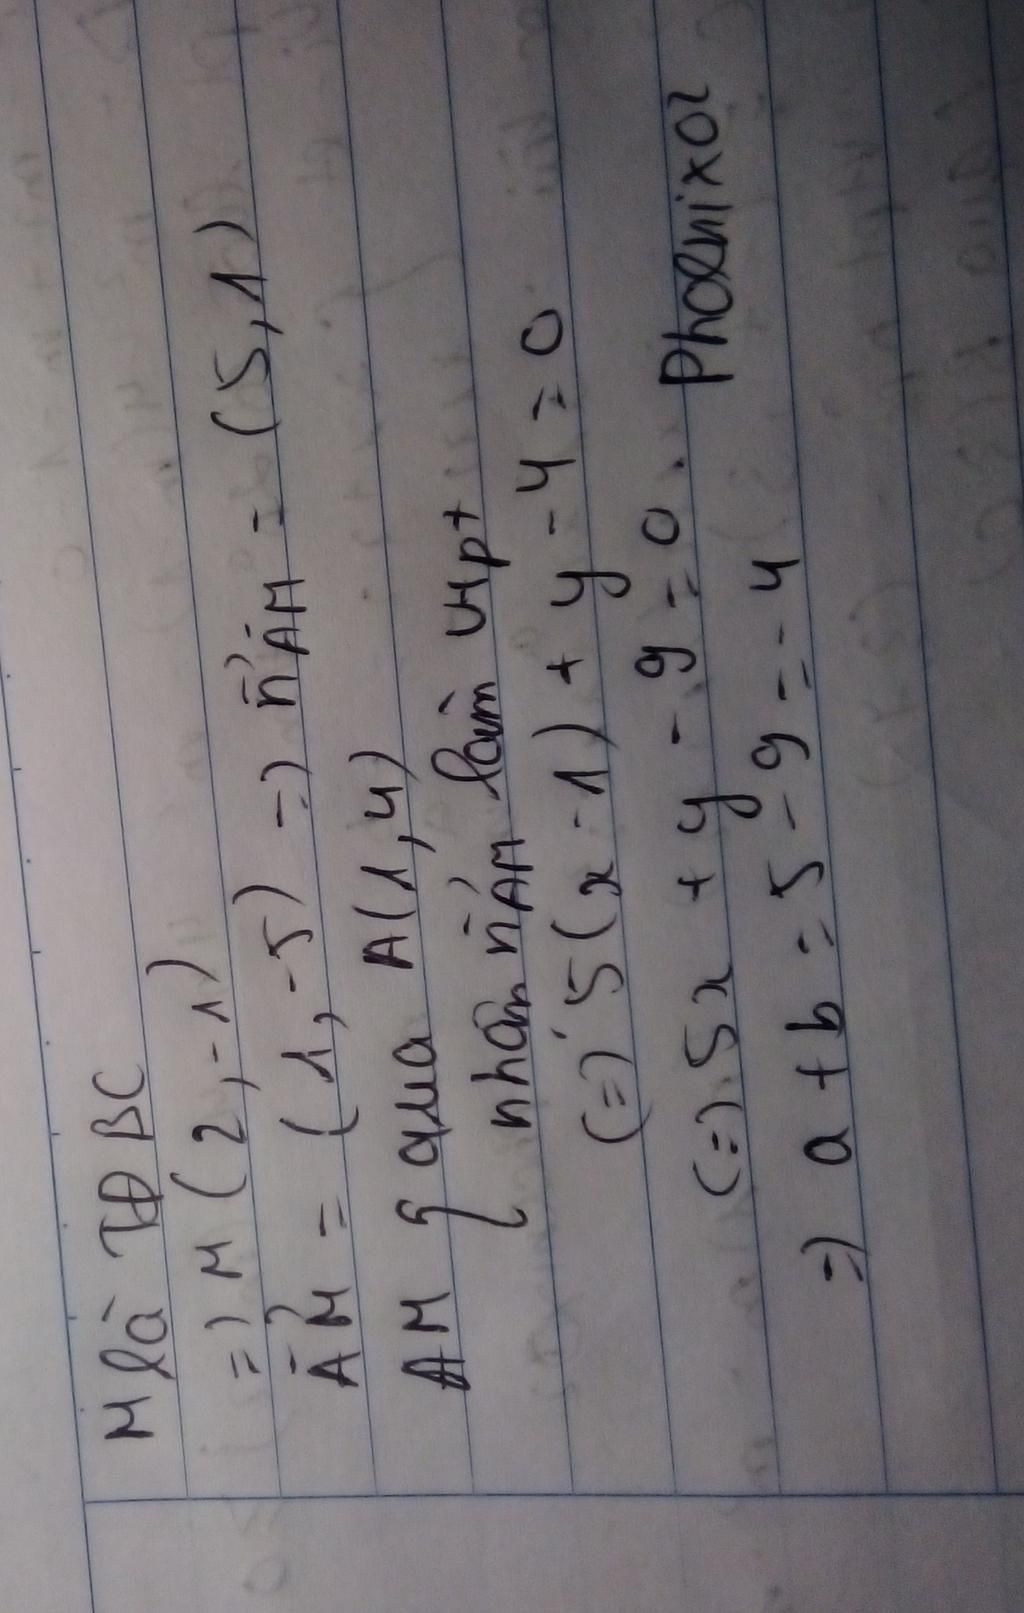 M là TĐ BC
=) M (2,-1)
AM = (1,-5) =) nAM = (5,1)
AM { qua A(1,4)
nhân nAM làm vtpt
(=) 5(x-1) + y - 4 = 0
(=) 5x + y - 9 = 0. Phoenixoz
=) a + b = 5 - 9 = -4